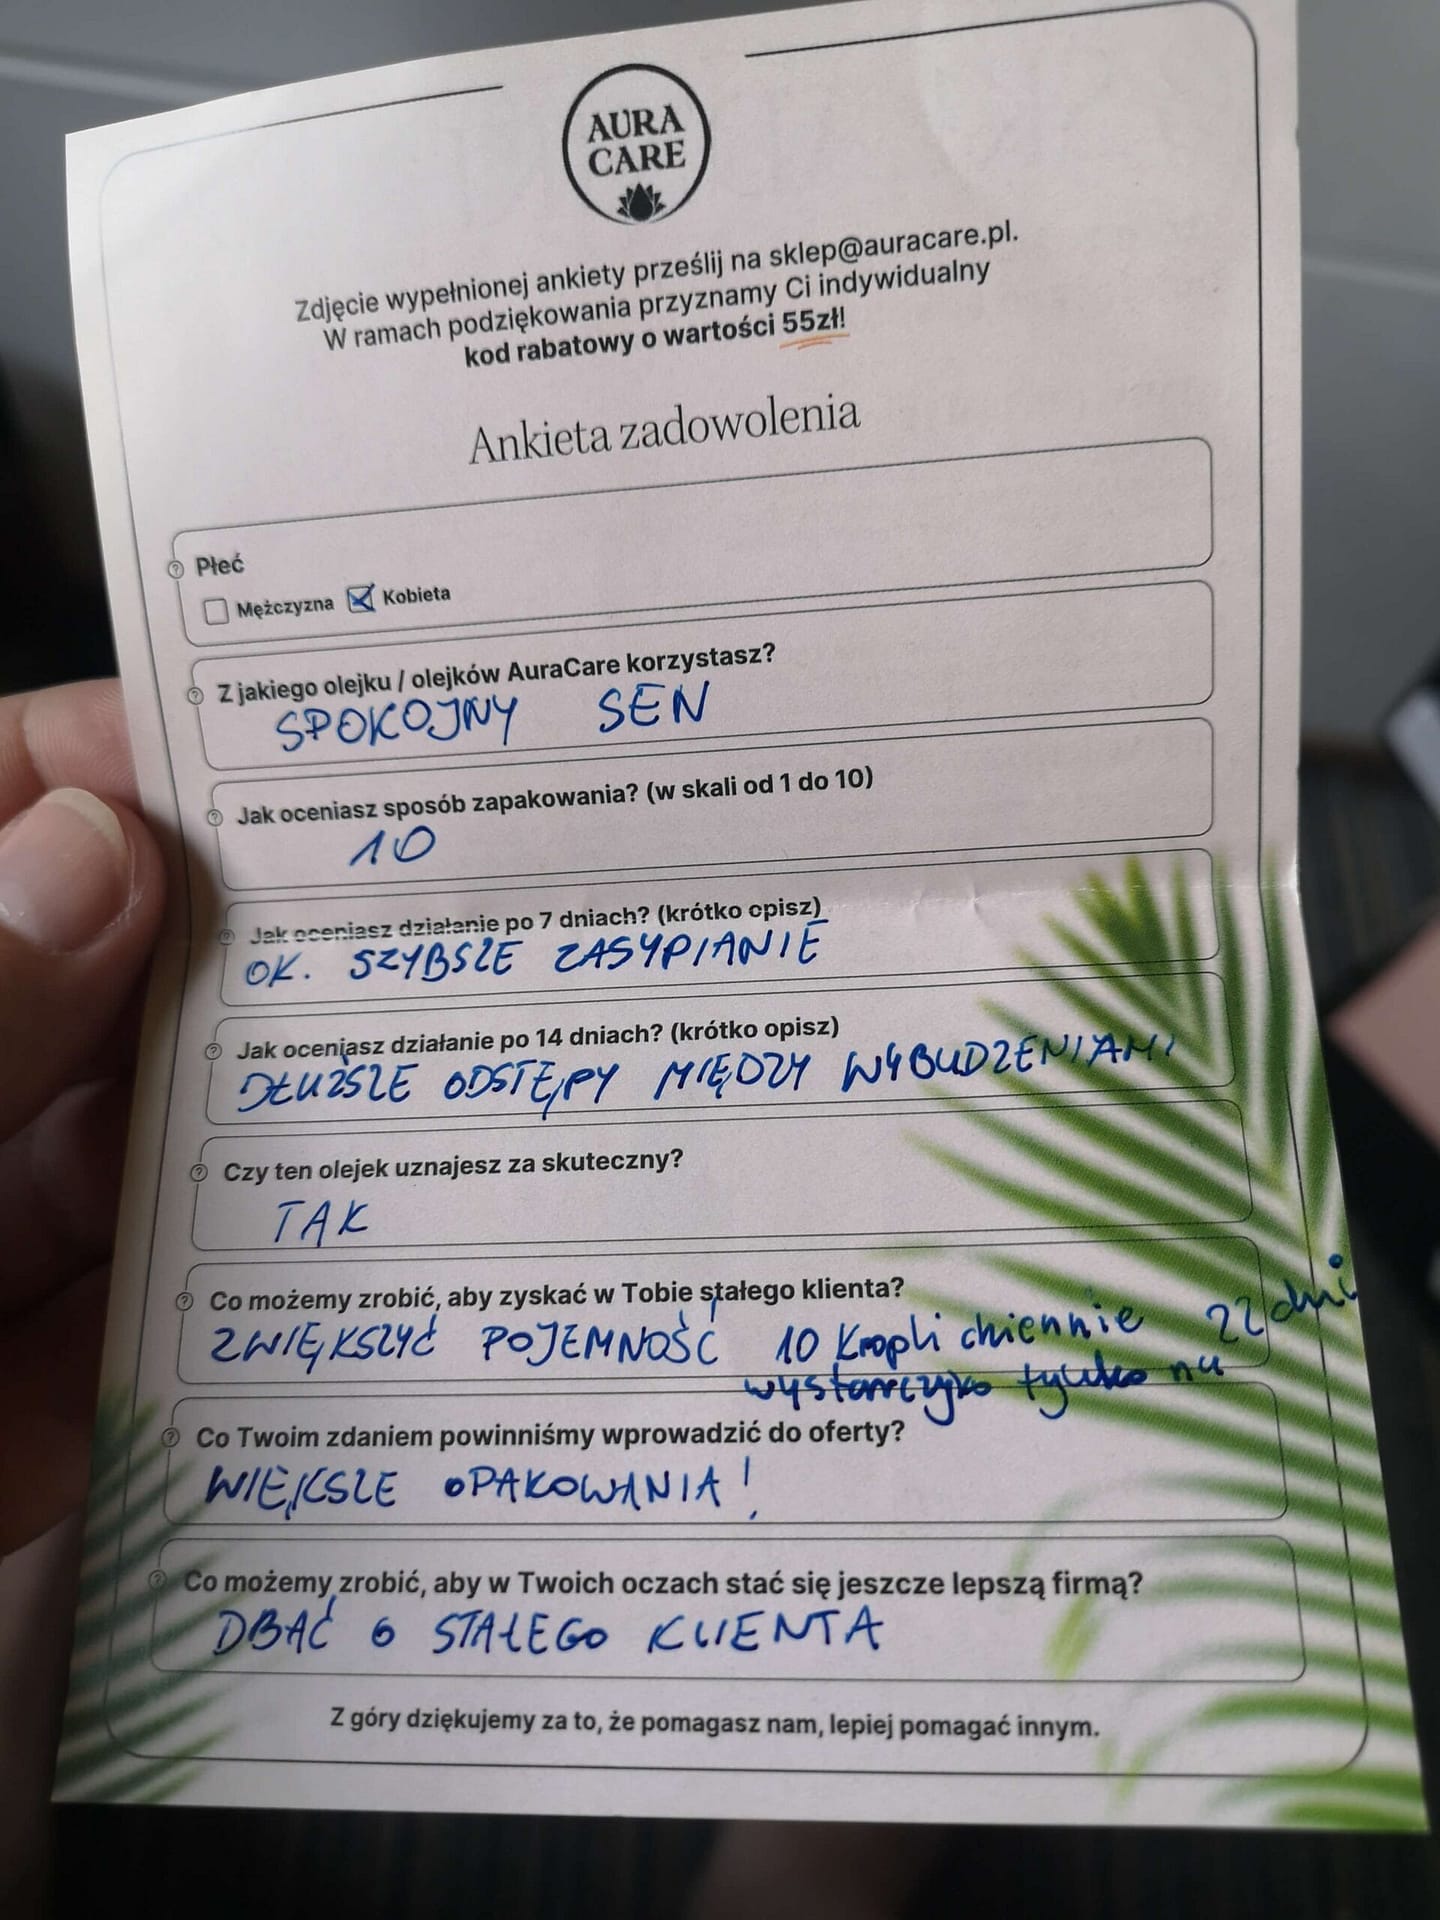 AURA
CARE
Zdjęcie wypełnionej ankiety prześlij na sklep@auracare.pl.
W ramach podziękowania przyznamy Ci indywidualny
kod rabatowy o wartości 55zł!
Ankieta zadowolenia
Płeć
Mężczyzna Kobieta
Z jakiego olejku / olejków AuraCare korzystasz?
SPOKOJNY SEN
Jak oceniasz sposób zapakowania? (w skali od 1 do 10)
10
Jak oceniasz działanie po 7 dniach? (krótko opisz)
OK. SZYBSZE ZASYPIANIE
Jak oceniasz działanie po 14 dniach? (krótko opisz)
DŁUŻSZE ODSTĘPY MIĘDZY WYBUDZENIAMI
Czy ten olejek uznajesz za skuteczny?
TAK
Co możemy zrobić, aby zyskać w Tobie stałego klienta?
ZWIĘKSZYĆ POJEMNOŚĆ 10 kropli dziennie
wystarczyło tylko na 22 dni
Co Twoim zdaniem powinniśmy wprowadzić do oferty?
WIĘKSZE OPAKOWANIA!
Co możemy zrobić, aby w Twoich oczach stać się jeszcze lepszą firmą?
DBAĆ O STAŁEGO KLIENTA
Z góry dziękujemy za to, że pomagasz nam, lepiej pomagać innym.